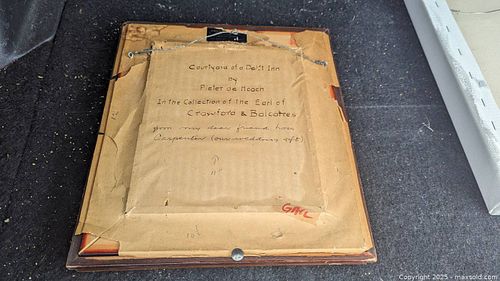 Courtyard of a Delft Inn
by
Pieter de Hooch
In the Collection of the Earl of
Crawford & Balcarres
from my dear friend from
Carpenter (our wedding gift)
11"
GAYL
10½
Copyright © 2025 - maxsold.com